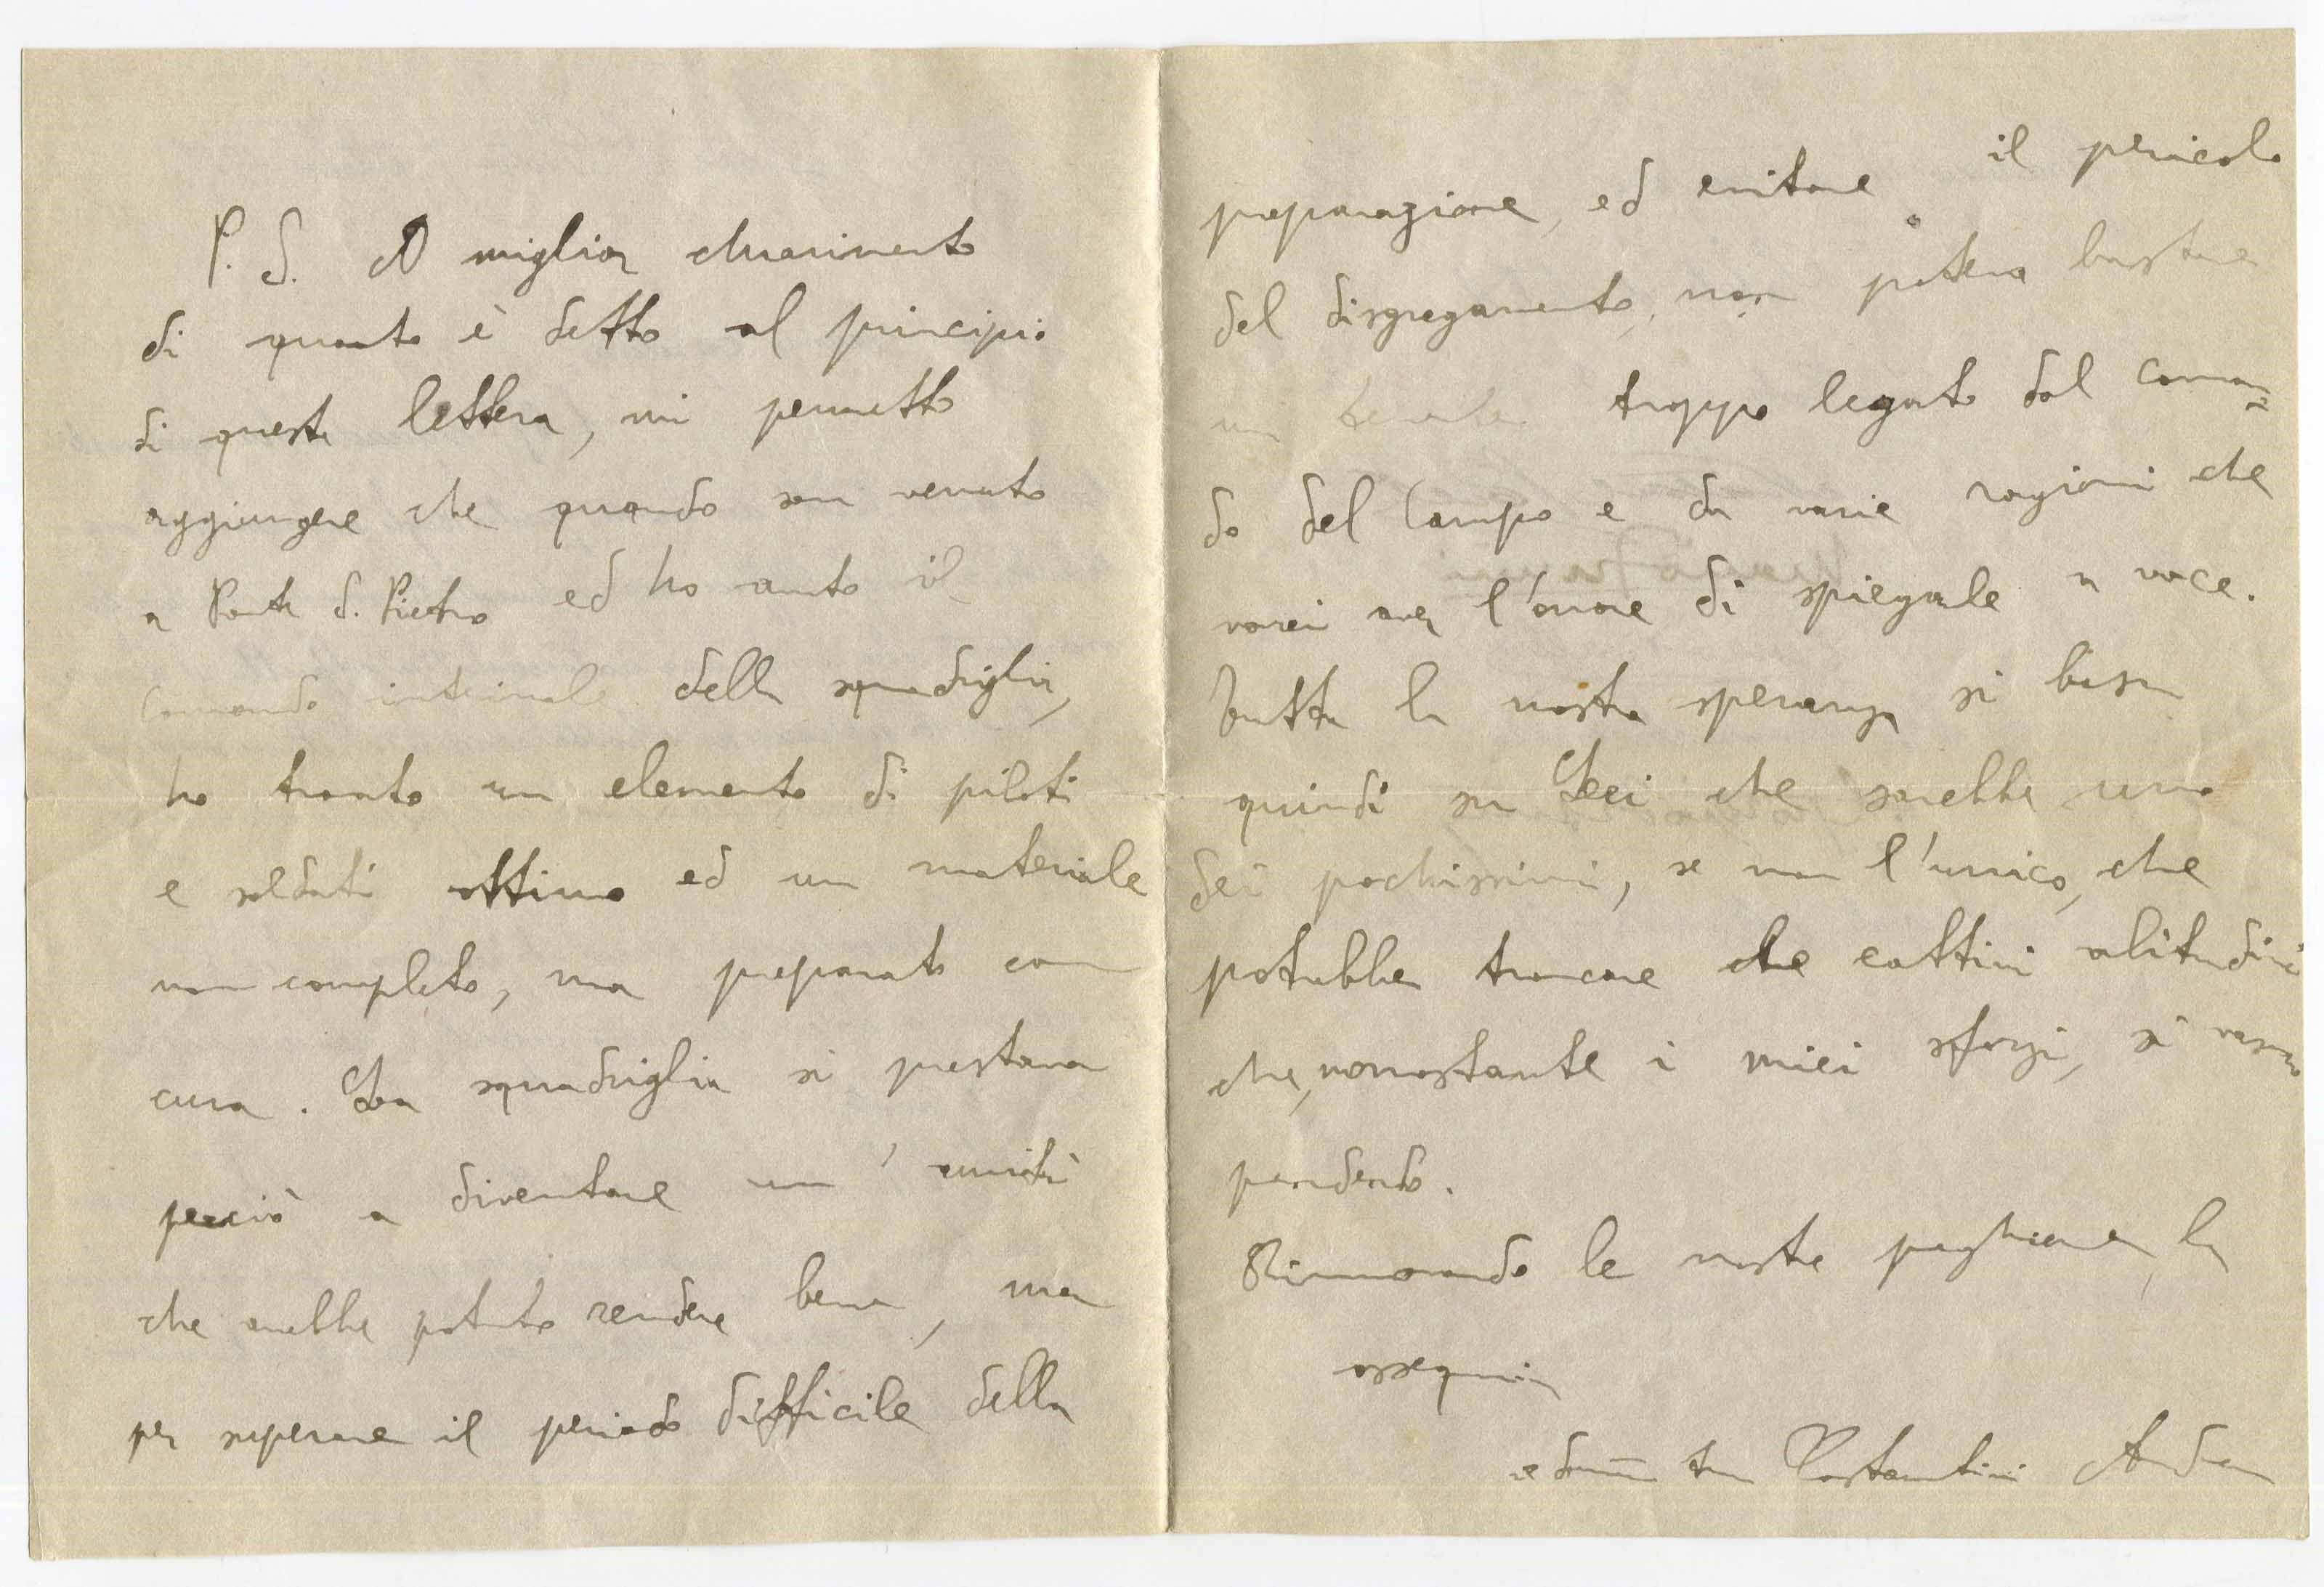 P. S. A miglior chiarimento
di quanto è detto al principio
di questa lettera, mi permetto
aggiungere che quando son venuto
a Ponte S. Pietro ed ho avuto il
comando interinale della squadriglia,
ho trovato un elemento di piloti
e soldati ottimo ed un materiale
non completo, ma preparato con
cura. La squadriglia si prestava
perciò a diventare un' unità
che avrebbe potuto rendere bene, ma
per superare il periodo difficile della
preparazione, ed evitare il pericolo
del disgregamento, non poteva bastare
un tenente troppo legato dal coman=
do del Campo e da varie ragioni che
vorrei aver l'onore di spiegarle a voce.
Tutta la nostra speranza si basa
quindi su Lei che sarebbe uno
dei pochissimi, se non l'unico, che
potrebbe troncare le cattivi abitudini
che, nonostante i miei sforzi, si vanno
prendendo.
Rinnovando le nostre preghiere, la
ossequia
Costantini Andrea